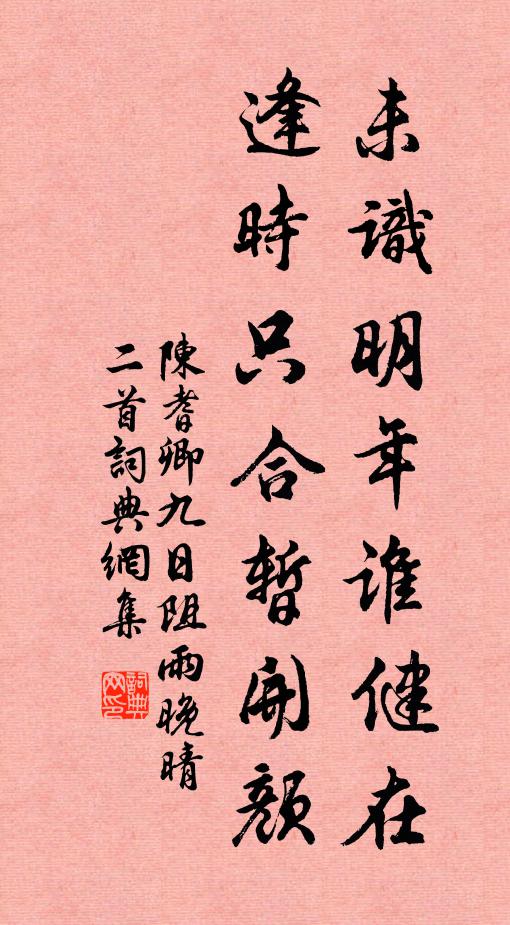 未識明年誰健在
逢時只合暫開顏
陳耆卿九日阻雨晚晴
二首詞典網集
詞典
网印